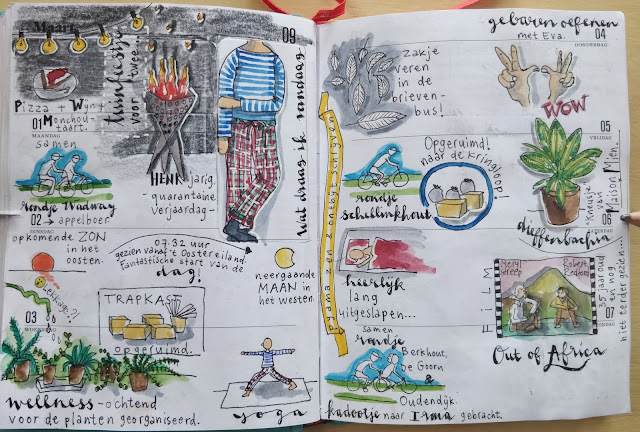 Maart
09
tuinfeestje
voor twee...
Pizza + Wijn +
Monchou-
taart.
01
MAANDAG
samen
rondje Wadway
→ appelboer.
HENK jarig.
quarantaine
verjaardag -
Wat draag ik vandaag
02
DINSDAG
opkomende ZON
in het
oosten.
07.32 uur
gezien vanaf 't Oostereiland.
Fantastische start van de
dag!
neergaande
MAAN in
het westen.
Lekkage?!
03
WOENSDAG
TRAPKAST
opgeruimd.
wellness-ochtend
voor de planten georganiseerd.
yoga
zakje
veren
in de
brieven-
bus!
gebaren oefenen
met Eva.
04
DONDERDAG
WOW
pyjama zon &
Opgeruimd!
naar de kringloop!
rondje
schellinkhout
05
VRIJDAG
knusje
van
Maison Mien.
dieffenbachia
06
heerlijk
lang
uitgeslapen...
FILM
Meryl
Streep
Robert
Redford
35 jaar oud
en nog
niet eerder gezien...
07
Out of Africa
samen
rondje
Berkhout,
De Goorn
&
Oudendijk.
kadootje naar Irma gebracht.